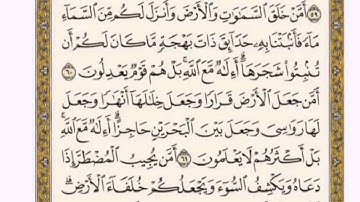 ٥٩ أَمَّنْ خَلَقَ ٱلسَّمَٰوَٰتِ وَٱلْأَرْضَ وَأَنزَلَ لَكُم مِّنَ ٱلسَّمَآءِ
مَآءً فَأَنۢبَتْنَا بِهِۦ حَدَآئِقَ ذَاتَ بَهْجَةٍ مَّا كَانَ لَكُمْ أَن
تُنۢبِتُوا۟ شَجَرَهَآ أَءِلَٰهٌ مَّعَ ٱللَّهِ بَلْ هُمْ قَوْمٌ يَعْدِلُونَ ٦٠
أَمَّن جَعَلَ ٱلْأَرْضَ قَرَارًا وَجَعَلَ خِلَٰلَهَآ أَنْهَٰرًا وَجَعَلَ
لَهَا رَوَٰسِىَ وَجَعَلَ بَيْنَ ٱلْبَحْرَيْنِ حَاجِزًا أَءِلَٰهٌ مَّعَ ٱللَّهِ
بَلْ أَكْثَرُهُمْ لَا يَعْلَمُونَ ٦١ أَمَّن يُجِيبُ ٱلْمُضْطَرَّ إِذَا
دَعَاهُ وَيَكْشِفُ ٱلسُّوٓءَ وَيَجْعَلُكُمْ خُلَفَآءَ ٱلْأَرْضِ